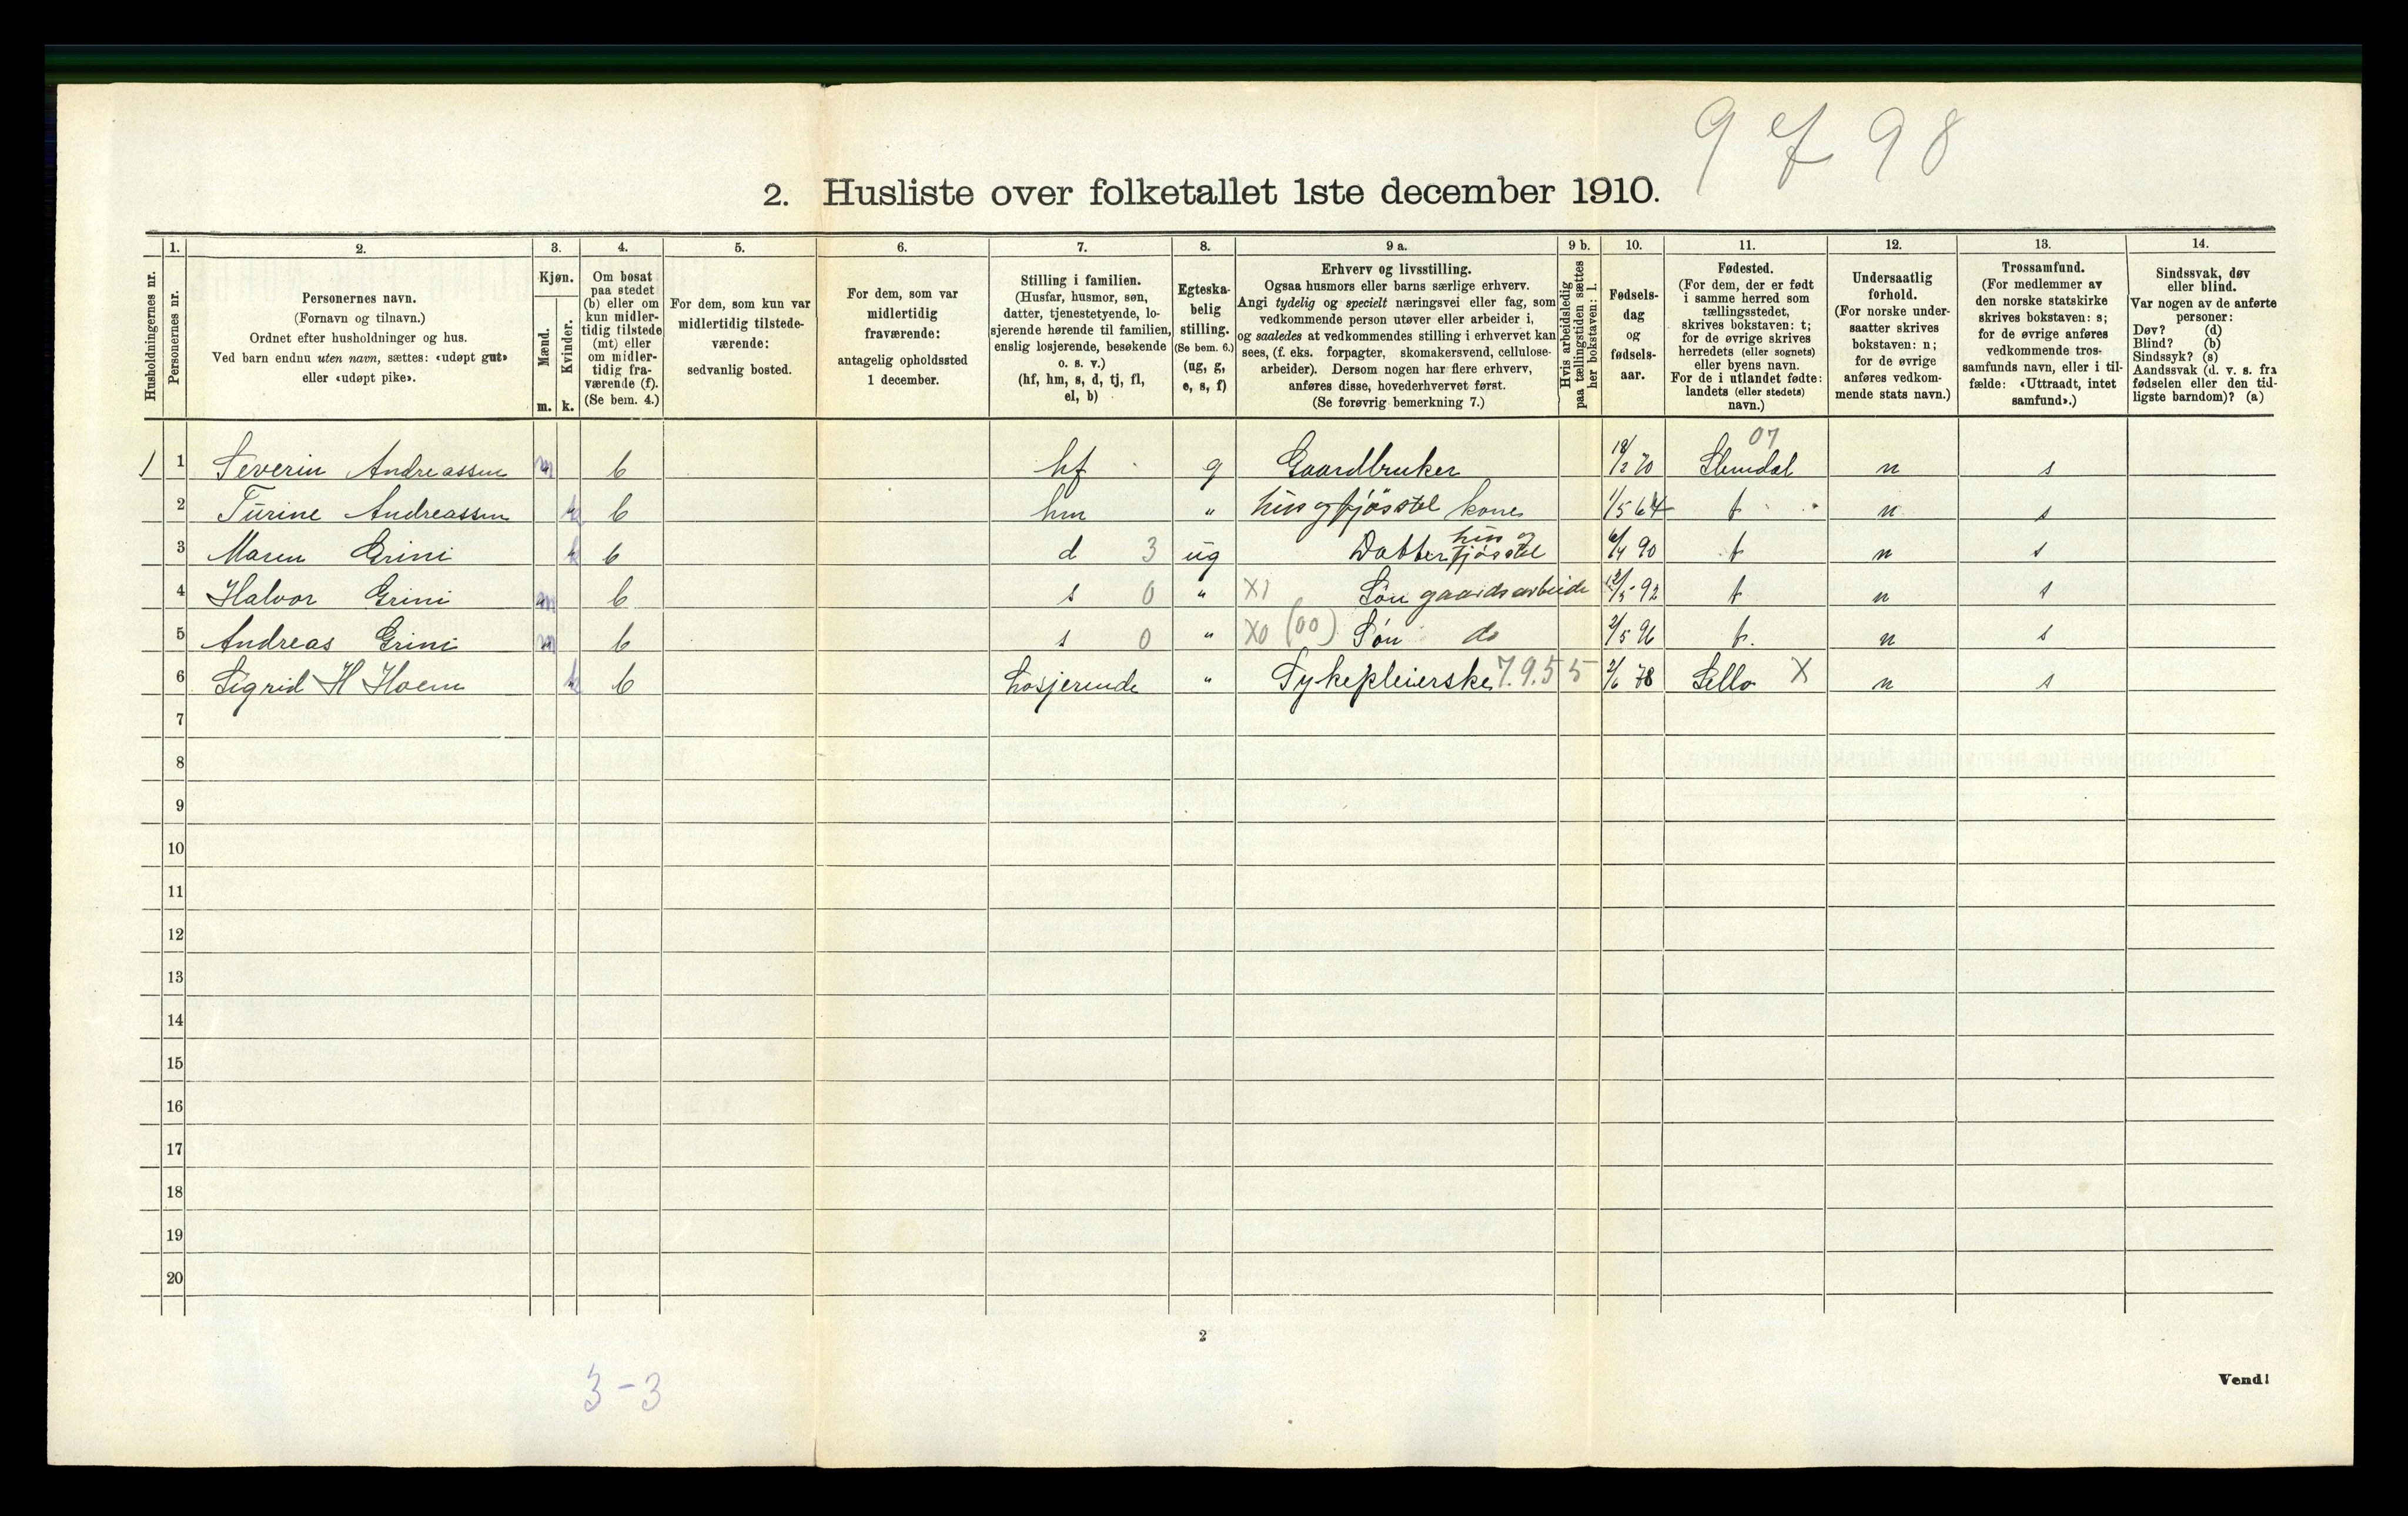 9 98
2. Husliste over folketallet 1ste december 1910.
1. 2. 3. 4. 5. 6. 7. 8. 9 a. 9 b. 10. 11. 12. 13. 14.
Husholdningernes nr.
Personernes nr.
Personernes navn.
(Fornavn og tilnavn.)
Ordnet efter husholdninger og hus.
Ved barn endnu uten navn, sættes: «udøpt gut»
eller «udøpt pike».
Kjøn.
Mænd.
Kvinder.
m. k.
Om bosat
paa stedet
(b) eller om
kun midler-
tidig tilstede
(mt) eller
om midler-
tidig fra-
værende (f).
(Se bem. 4.)
For dem, som kun var
midlertidig tilstede-
værende:
sedvanlig bosted.
For dem, som var
midlertidig
fraværende:
antagelig opholdssted
1 december.
Stilling i familien.
(Husfar, husmor, søn,
datter, tjenestetyende, lo-
sjerende hørende til familien,
enslig losjerende, besøkende
o. s. v.)
(hf, hm, s, d, tj, fl,
el, b)
Egteska-
belig
stilling.
(Se bem. 6.)
(ug, g,
e, s, f)
Erhverv og livsstilling.
Ogsaa husmors eller barns særlige erhverv.
Angi tydelig og specielt næringsvei eller fag, som
vedkommende person utøver eller arbeider i,
og saaledes at vedkommendes stilling i erhvervet kan
sees, (f. eks. forpagter, skomakersvend, cellulose-
arbeider). Dersom nogen har flere erhverv,
anføres disse, hovederhvervet først.
(Se forøvrig bemerkning 7.)
Hvis arbeidsledig
paa tællingstiden sættes
her bokstaven: l.
Fødsels-
dag
og
fødsels-
aar.
Fødested.
(For dem, der er født
i samme herred som
tællingsstedet,
skrives bokstaven: t;
for de øvrige skrives
herredets (eller sognets)
eller byens navn.
For de i utlandet fødte:
landets (eller stedets)
navn.)
Undersaatlig
forhold.
(For norske under-
saatter skrives
bokstaven: n;
for de øvrige
anføres vedkom-
mende stats navn.)
Trossamfund.
(For medlemmer av
den norske statskirke
skrives bokstaven: s;
for de øvrige anføres
vedkommende tros-
samfunds navn, eller i til-
fælde: «Uttraadt, intet
samfund».)
Sindssvak, døv
eller blind.
Var nogen av de anførte
personer:
Døv? (d)
Blind? (b)
Sindssyk? (s)
Aandssvak (d. v. s. fra
fødselen eller den tid-
ligste barndom)? (a)
07
1 1 Severin Andreassen m b hf g Gaardbruker 18/2 70 n s
2 Turine Andreassen k b hm " hus og fjøsstel kone 1/5 64 t n s
3 Maren Grini k b d 3 ug Datter hus og fjøsstel 6/4 90 t n s
4 Halvor Grini m b s 0 " X1 Søn gaardsarbeide 92 t n s
5 Andreas Grini m b s 0 " X0 (00) Søn do 2/5 96 t. n s
6 Sigrid H Hoem k b Losjerende " Sykepleierske 7.9.55 2/6 78 X n s
7
8
9
10
11
12
13
14
15
16
17
18
19
20
2
3-3
Vend!